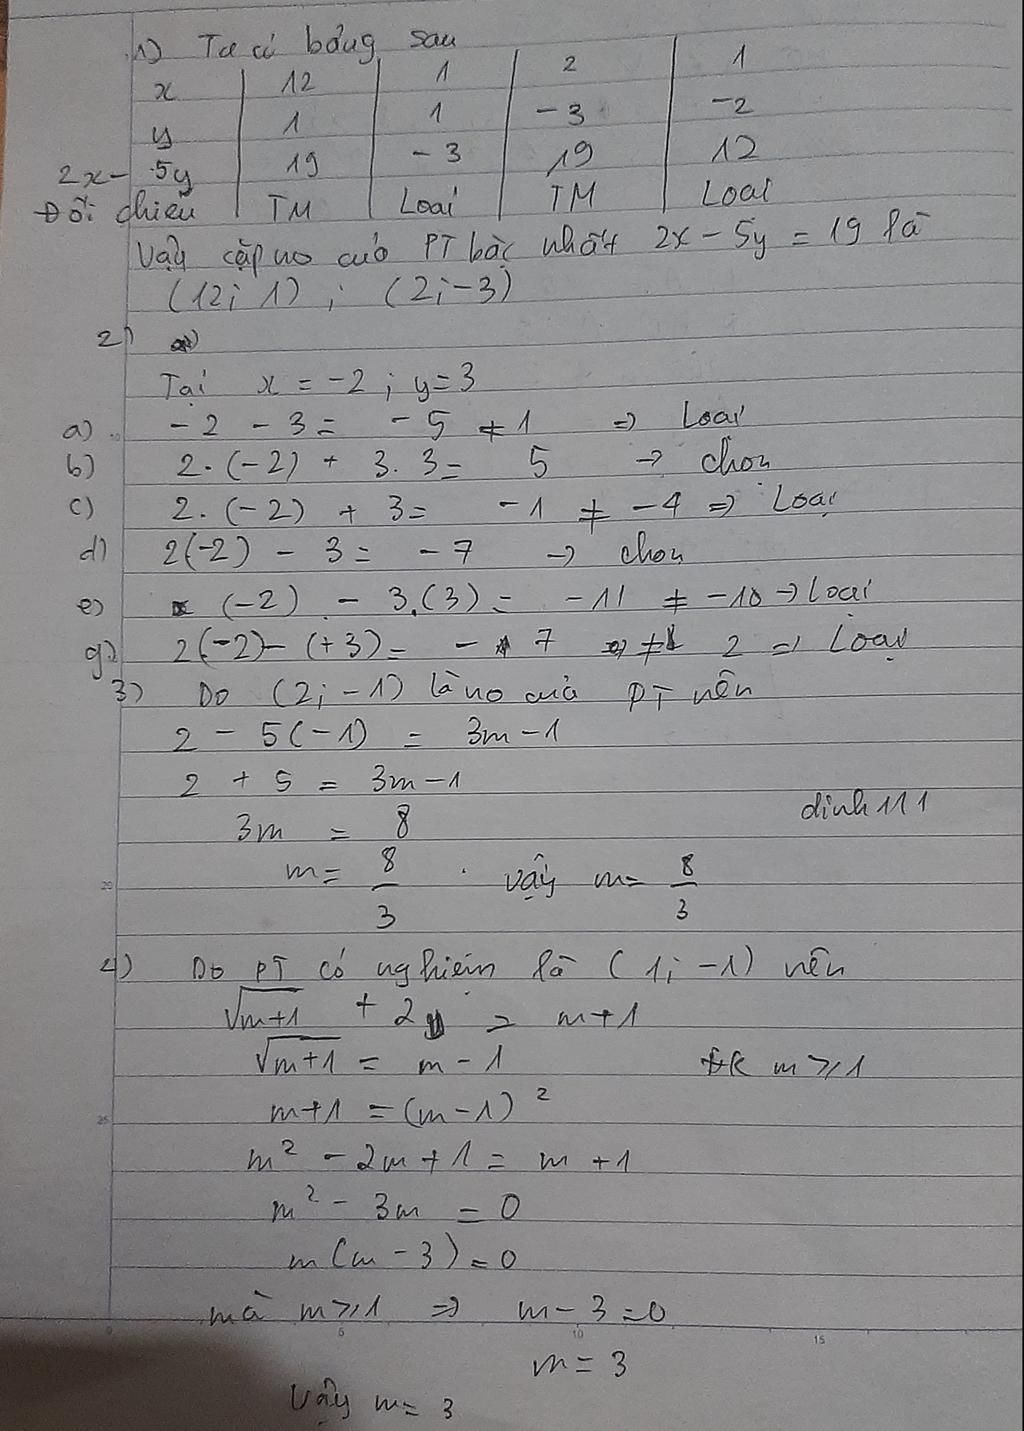 1) Ta có bảng sau
x | 12 | 1 | 2 | 1
y | 1 | 1 | -3 | -2
2x - 5y | 19 | -3 | 19 | 12
Đối chiếu | TM | Loại | TM | Loại
Vậy cặp no của PT bậc nhất 2x - 5y = 19 là
(12; 1) ; (2; -3)
2)
Tại x = -2 ; y = 3
a) -2 - 3 = -5 ≠ 1 => Loại
b) 2.(-2) + 3.3 = 5 → chọn
c) 2.(-2) + 3 = -1 ≠ -4 => Loại
d) 2(-2) - 3 = -7 → chọn
e) (-2) - 3.(3) = -11 ≠ -10 → Loại
g) 2(-2) - (+3) = -7 ≠ 2 => Loại
3) Do (2; -1) là no của PT nên
2 - 5(-1) = 3m - 1
2 + 5 = 3m - 1
dinh111
3m = 8
m = 8/3 . vậy m = 8/3
4) Do PT có nghiệm là (1; -1) nên
√m+1 + 2 = m + 1
√m+1 = m - 1 ĐK m ⩾ 1
m + 1 = (m - 1)²
m² - 2m + 1 = m + 1
m² - 3m = 0
m(m - 3) = 0
mà m ⩾ 1 => m - 3 = 0
m = 3
Vậy m = 3